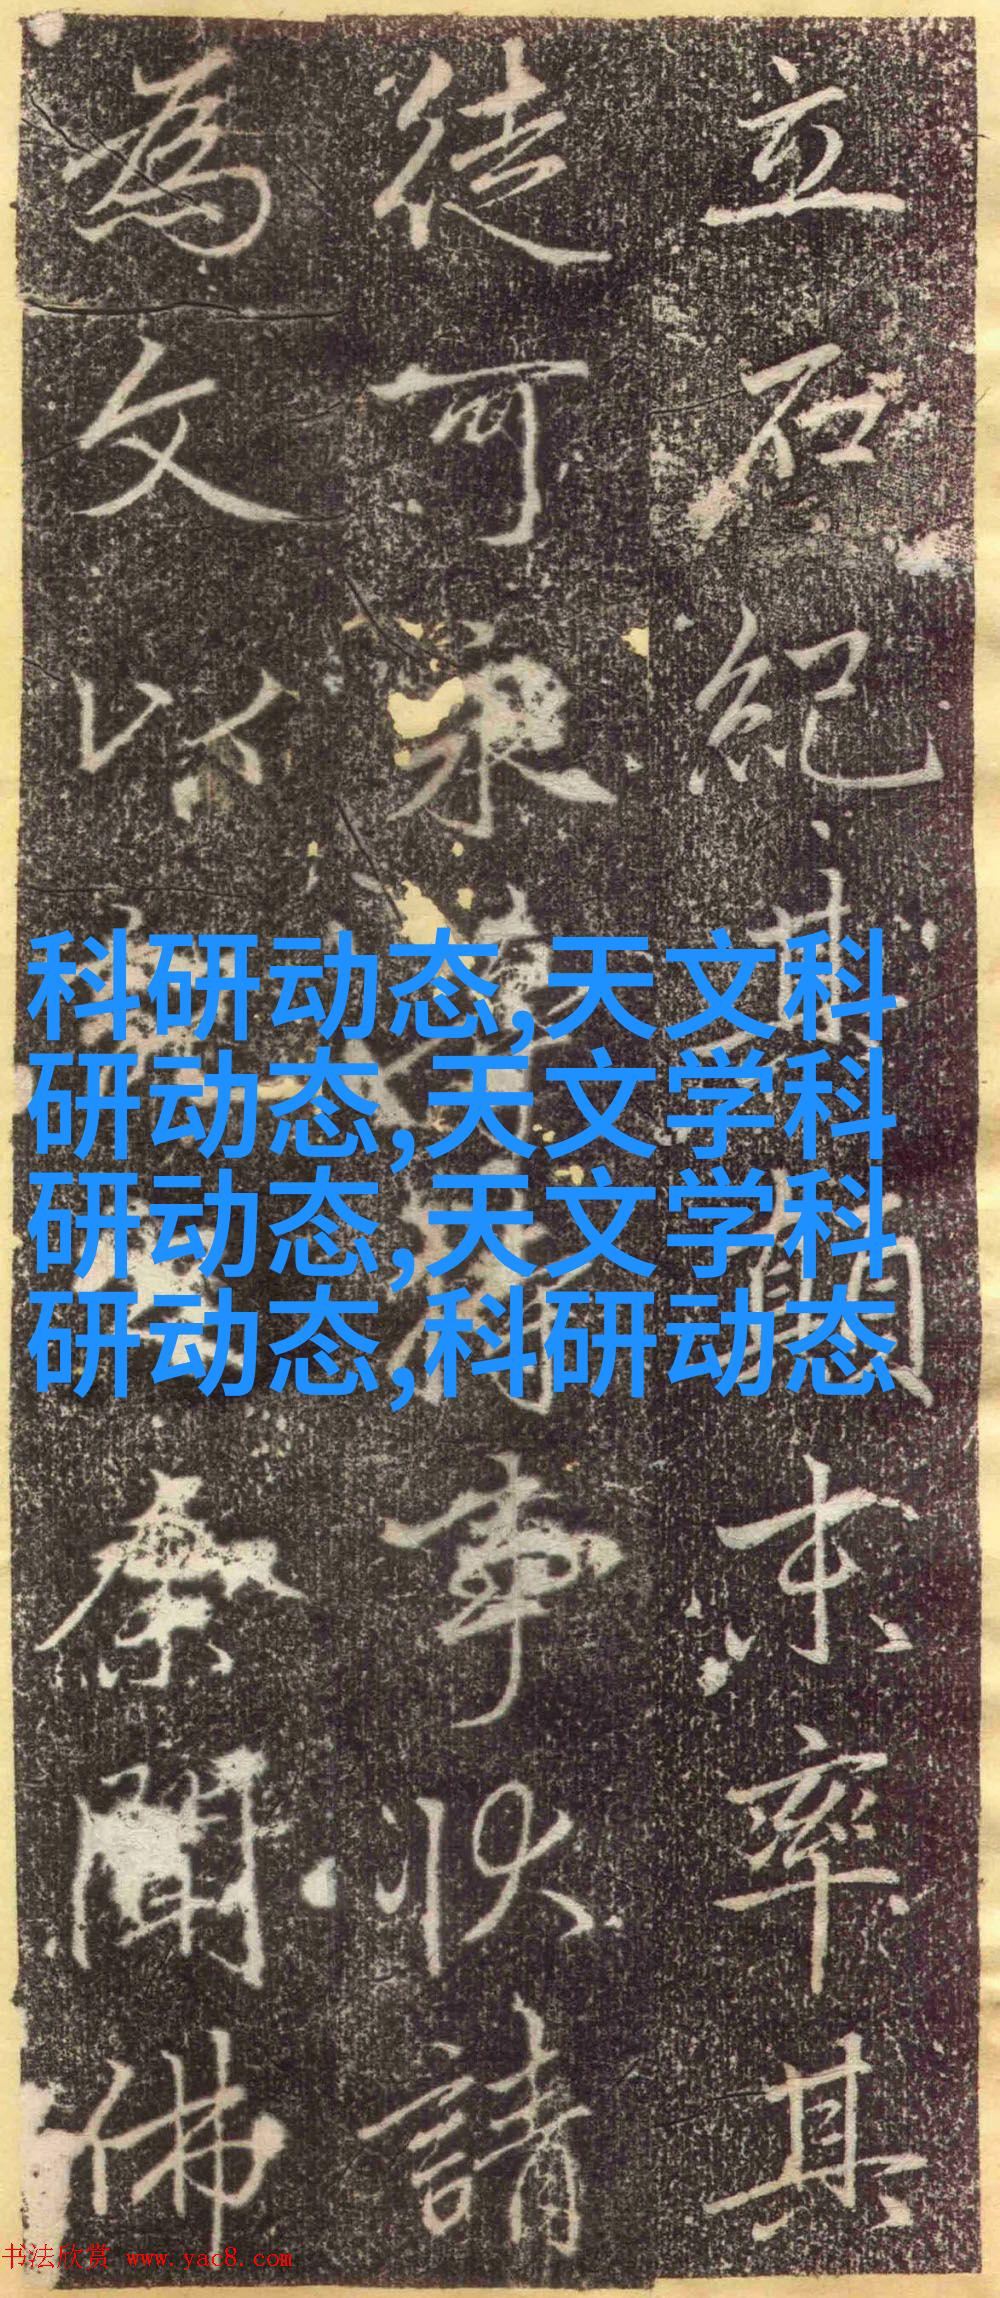 立石紀其顛末率其
徒可永持事狀請
為文以余聞佛
科研动态,天文科
研动态,天文学科
研动态,天文学科
研动态,科研动态
书法欣赏 www.yac8.com